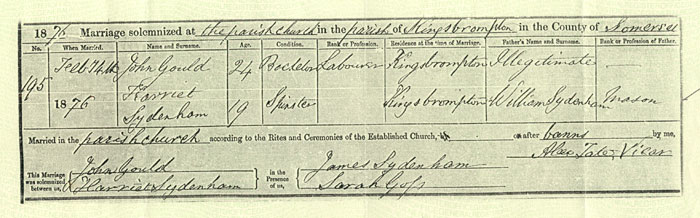 1876 Marriage solemnized at the parish church in the parish of Kingsbrompton in the County of Somerset
No. When Married. Name and Surname. Age. Condition. Rank or Profession. Residence at the time of Marriage. Father's Name and Surname. Rank or Profession of Father.
195 Feb 14th John Gould 24 Bachelor Labourer Kingsbrompton Illegitimate —
1876 Harriet Sydenham 19 Spinster Kingsbrompton William Sydenham Mason
Married in the parish church according to the Rites and Ceremonies of the Established Church, or after banns by me,
Vicar
This Marriage was solemnized between us, John Gould Harriet Sydenham in the Presence of us, James Sydenham Sarah